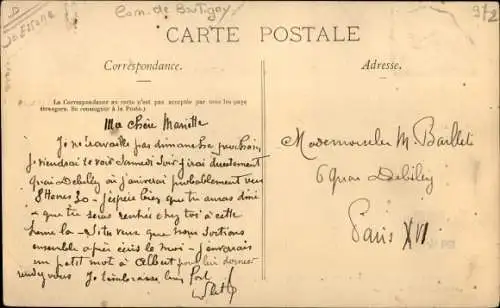 Com. de Brétigny
CARTE POSTALE
Correspondance.
Adresse.
La Correspondance au recto n'est pas acceptée par tous les pays
étrangers. Se renseigner à la Poste.)
Ma chère Mariette
Je ne travaille pas dimanche prochain,
je viendrai te voir samedi soir j'irai directement
quai Debilley où j'arriverai probablement vers
8 Heures 30 - j'espère bien que tu auras diné
et que tu seras rentrée chez toi à cette
heure là - Si tu veux que nous sortions
ensemble après écris le moi - j'enverrais
un petit mot à Albert pour lui donner
rendez vous Je t'embrasse bien fort
Mademoiselle M. Baillet
6 Quai Debilley
Paris XVI